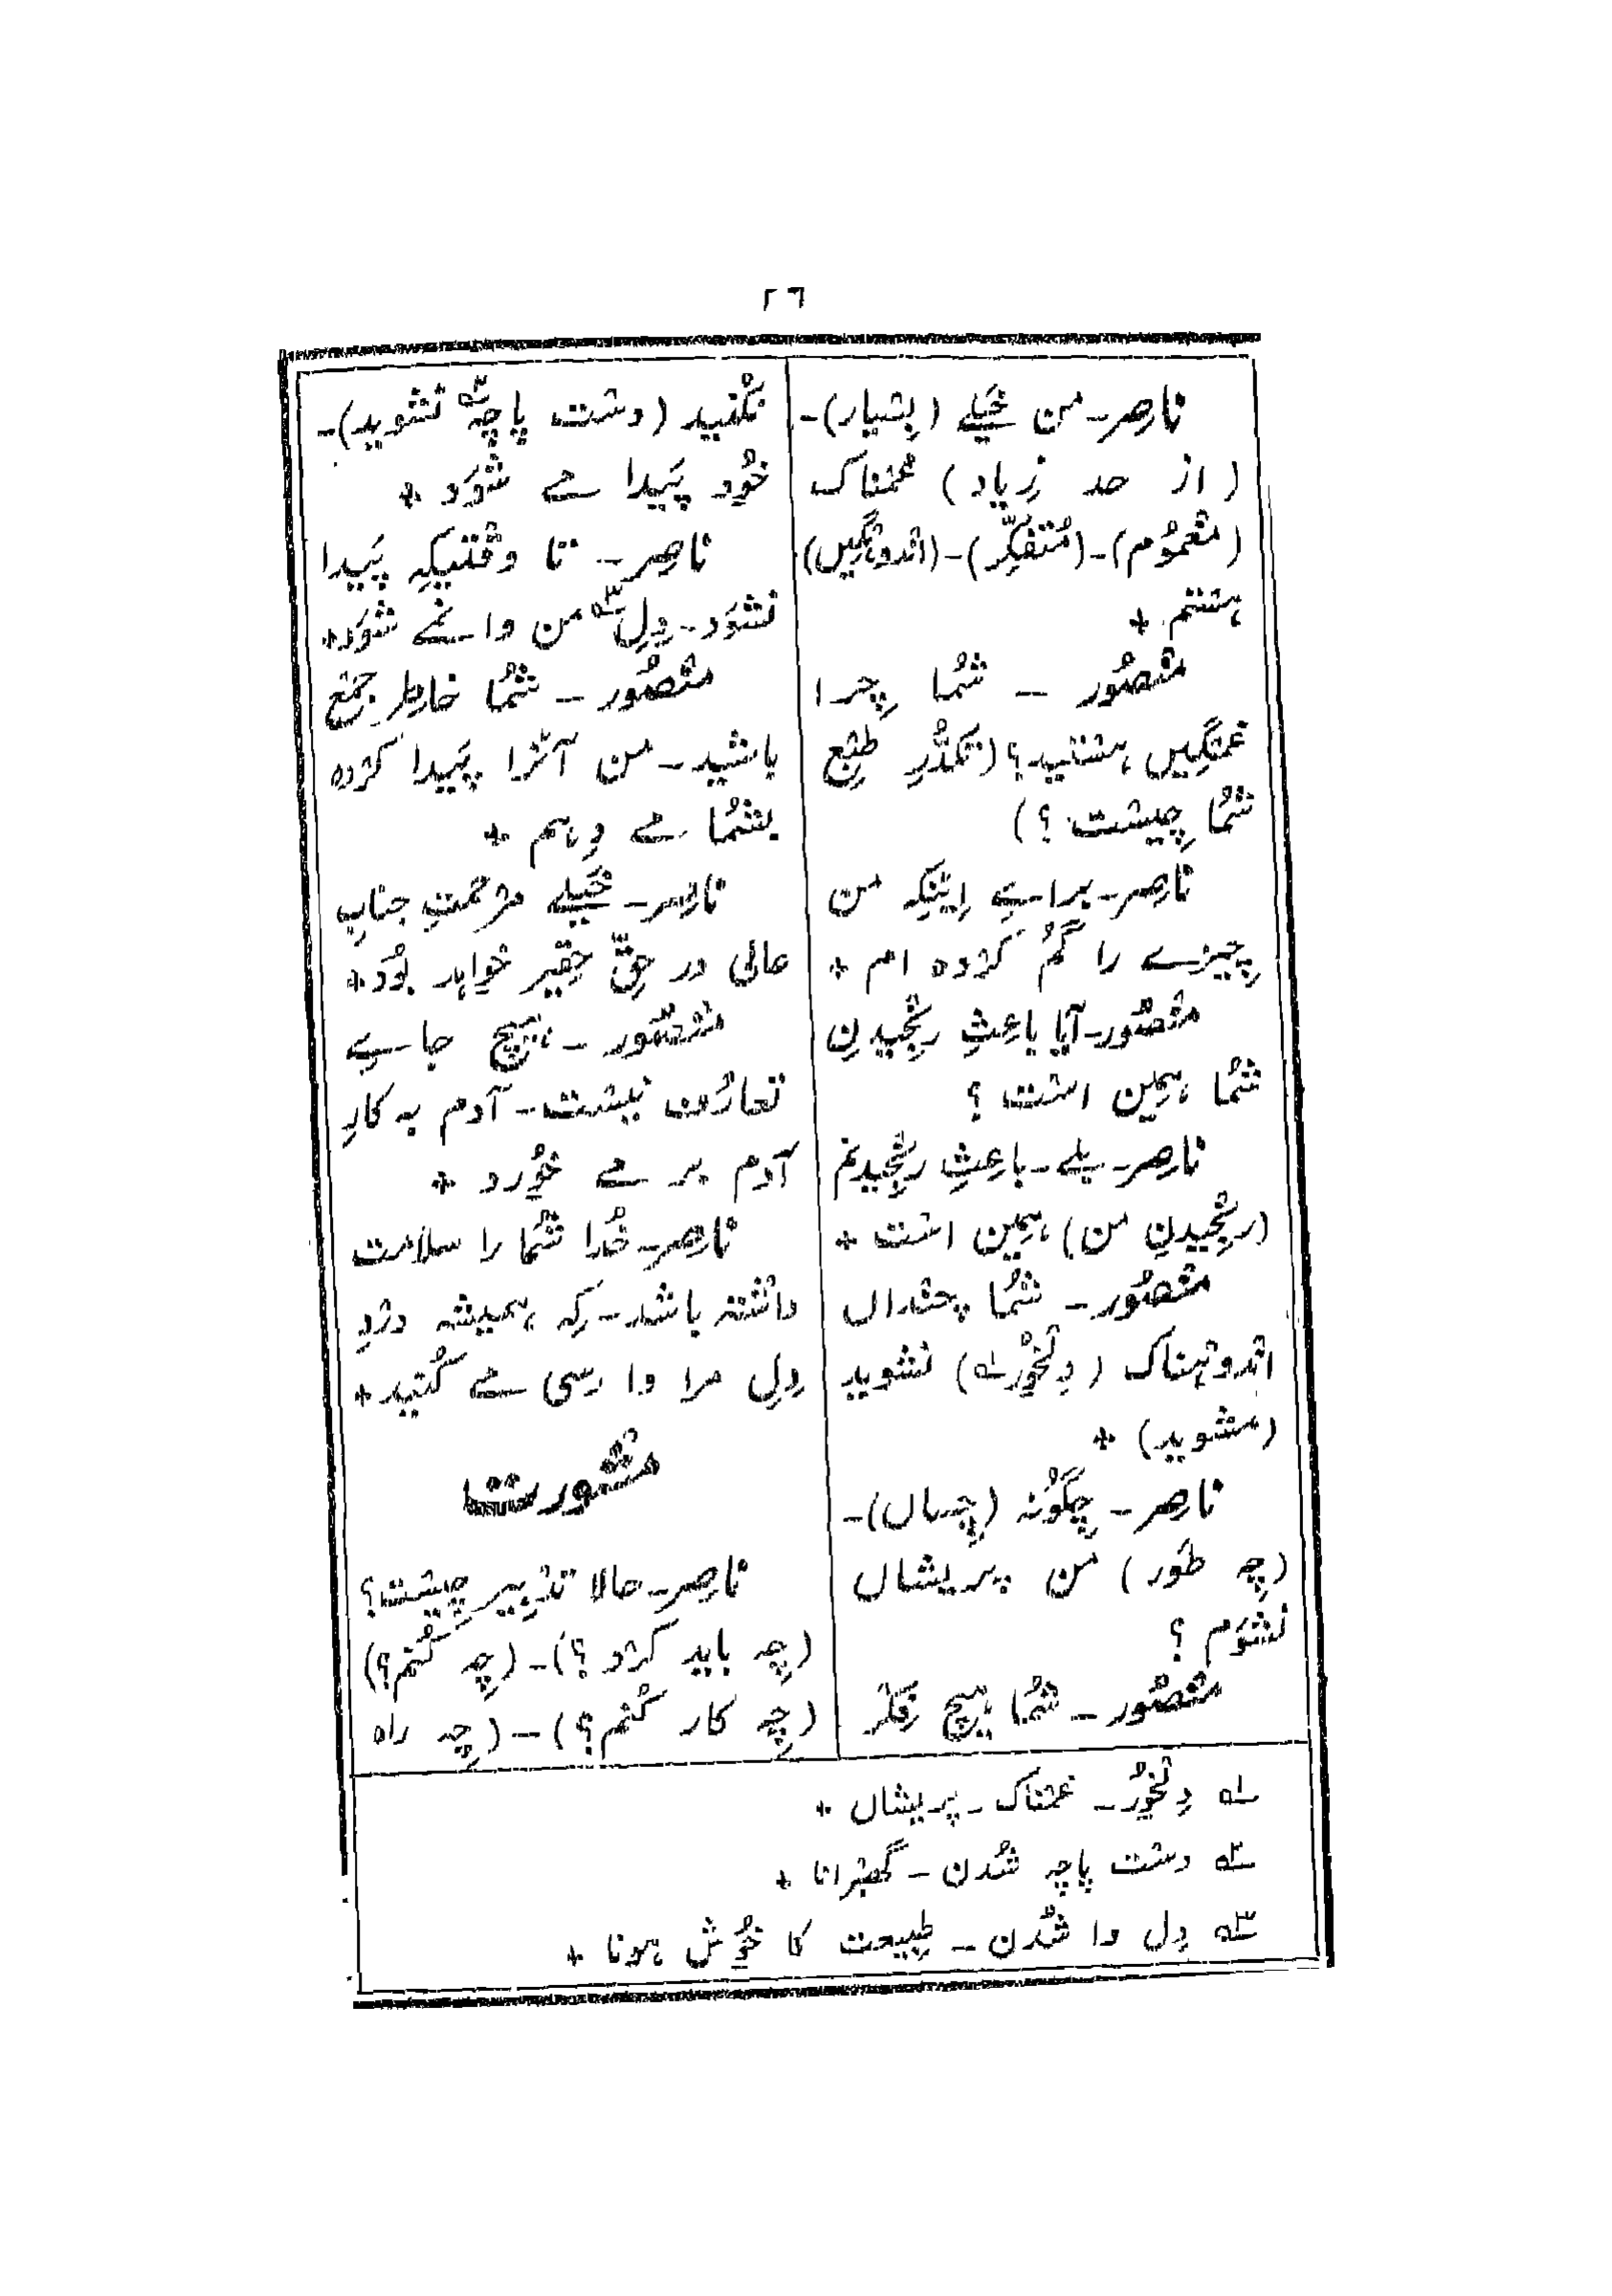 ۲۶
ناصر۔ من خیلے (بسیار)۔
(از حد زیاد) غمناک
(مغموم)۔(متفکّر)۔(اندوہگیں)
ہستم +
منصُور ۔ شُما چرا
غمگیں ہستید؟ (تکدّرِ طبع
شُما چیست؟)
ناصر۔ براے اینکہ من
چیزے را گُم کردہ ام +
منصُور۔ آیا باعثِ رنجیدنِ
شُما ہمیں است؟
ناصر۔ بلے۔ باعثِ رنجیدنم
(رنجیدنِ من) ہمیں است +
منصُور۔ شُما چنداں
اندوہناک (دلخور؎۱) نشوید
(مشوید) +
ناصر۔ چگُونہ (چساں)۔
(چہ طَور) من پریشاں
نشوَم؟
منصُور۔ شُما ہیچ فکر
نکُنید (دست پاچہ؎۲ نشوید)۔
خود پَیدا مے شوَد +
ناصر۔ تا وقتیکہ پَیدا
نشوَد۔ دِل؎۳ من وا نمے شوَد +
منصُور ۔ شُما خاطر جمع
باشید۔ من آنرا پَیدا کردہ
بشُما مے دہم +
ناصر۔ خیلے مرحمتِ جنابِ
عالی در حقِّ حقیر خواہد بُود +
منصُور ۔ ہیچ جاے
تعارُف نیست۔ آدم بہ کارِ
آدم بر مے خورد +
ناصر۔ خُدا شُما را سلامت
داشتہ باشد۔ کہ ہمیشہ دردِ
دِل مرا وا رسی مے کُنید +
مشورت
ناصر۔ حالا تدبیر چیست؟
(چہ باید کرد؟)۔ (چہ کُنم؟)
(چہ کار کُنم؟)۔ (چہ راہ
؎۱ دِلخور۔ غمناک۔ پریشاں +
؎۲ دست پاچہ شُدن ۔ گھبرانا +
؎۳ دِل وا شُدن ۔ طبیعت کا خوش ہونا +